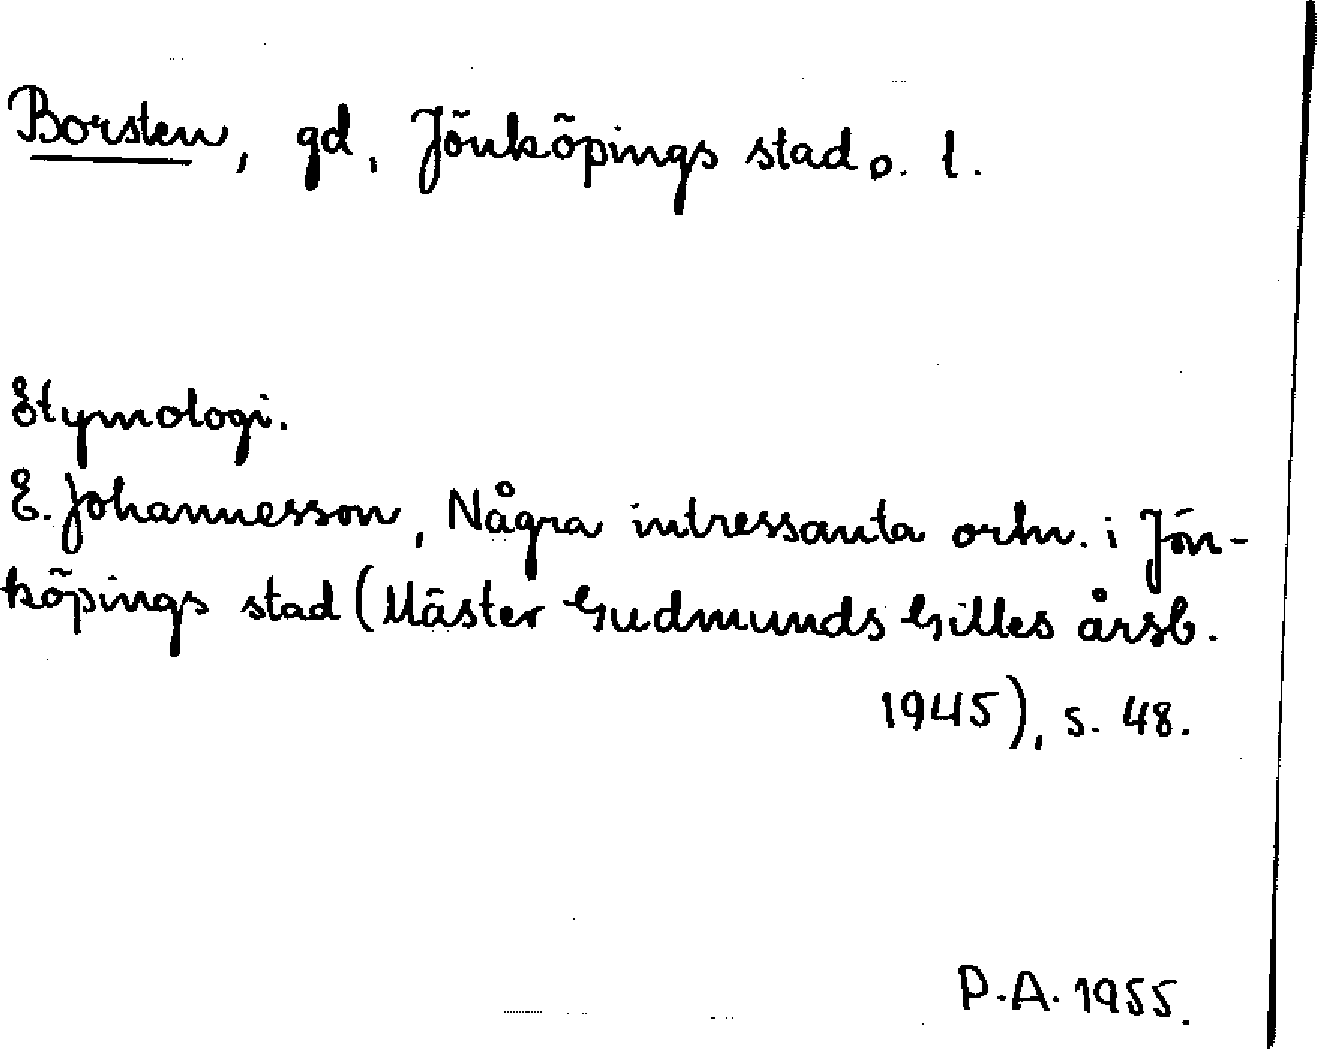 Borsten, gd, Jönköpings stad o. l.
Etymologi.
E. Johannesson, Några intressanta ortn. i Jön-
köpings stad (Mäster Gudmunds Gilles årsb.
1945), s. 48.
P.A. 1955.